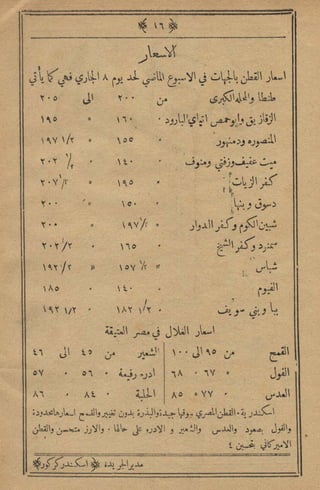 ﴿ ١٦ ﴾
الاسعار
اسعار القطن بالجهات في الاسبوع الماضي لحد يوم ٨ الجاري فهي كما يأتي
طنطا والمحله الكبرى من ٢٠٠ الى ٢٠٥
الزقازيق وابو حمص ايتاي البارود ٠ ١٦٠ » ١٩٥
المنصوره ودمنهور ٠ ١٥٥ » ١/٢ ١٩٧
ميت عفيف وزفتي ومنوف ٠ ١٤٠ ٠ ١/٢ ٢٠٢
كفر الزيات ٠ ١٩٥ » ١/٢ ٢٠٧
دسوق وبنها ٠ ١٥٠ » ٢٠٠
شبين الكوم وكفر الدوار » ١/٢ ١٩٧ ٠ ٢٠٠
سمنود وكفر الشيخ ٠ ١٦٥ ٠ ١/٢ ٢٠٢
شباس » ١/٢ ١٥٧ » ١/٢ ١٩٢
الفيوم ٠ ١٤٠ ٠ ١٨٥
ببا وبني سويف ٠ ١/٢ ١٨٢ ٠ ١/٢ ١٩٢
اسعار الغلال في مصر العتيقة
القمح من ٩٥ الى ١٠٠ الشعير من ٤٥ الى ٤٦
الفول » ٦٧ ٠ ٦٨ ادره رفيعة ٠ ٥٦ ٠ ٥٧
العدس ٠ ٧٧ » ٨٥ الحلبة ٠ ٨٤ ٠ ٨٦
اسكندرية ٠ القطن المصري سوقها جيدة والبذرة بدون تغيير والقمح اسعارها محدودة
والفول بصعود والعدس والشعير و الادره على حالها ٠ والارز متحسن والقطن
الاميركاني بتحسين ٤
مدير الجريدة ﴿ اسكندر كركور ﴾